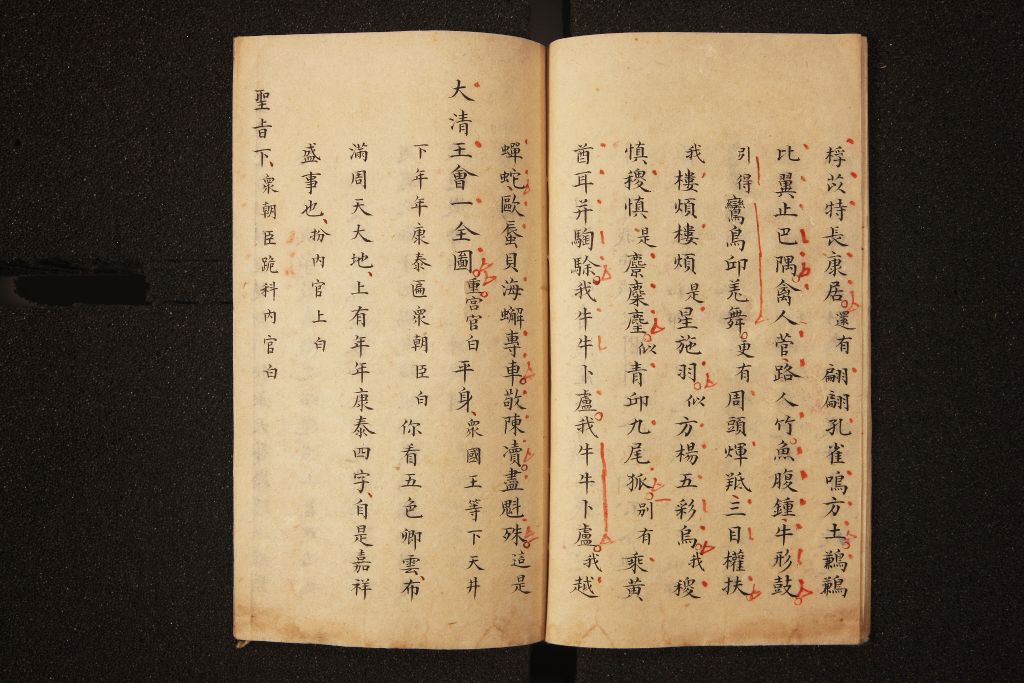 桴苡特長康居還有翩翩孔雀鳴方土鶼鶼
比翼止巴隅禽人菅路人竹魚腹鍾牛形鼓
引得鸞鳥邱羌舞更有周頭煇羝三目權扶
我樓煩樓煩是星施羽似方楊五彩鳥我稷
慎稷慎是麖麋麈似青邱九尾狐別有乘黃
酋耳并騊駼我牛牛卜盧我牛牛卜盧我越
蟬蛇歐蜃貝海蠏專車敬陳凟盡魁殊這是
大清王會一全圖重宮官白平身衆國王等下天井
下年年康泰匾衆朝臣白你看五色卿雲布
滿周天大地上有年年康泰四字自是嘉祥
盛事也扮內官上白
聖旨下衆朝臣跪科內官白